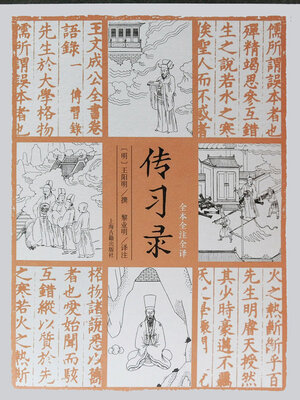 王文成公全書卷
語錄一 傳習錄
先生於大學格物
儒所謂誤本者也
俟聖人而不惑者
生之說若水之寒
殫精竭思參互錯
传习录
全本全注全译
［明］王阳明／撰
黎业明／译注
上海古籍出版社
火之熱斷斷乎百
先生明睿天授然
其少時豪邁不羈
格物諸說悉以舊
者也愛始聞而駭
互錯縱以質於先
之寒若火之熱